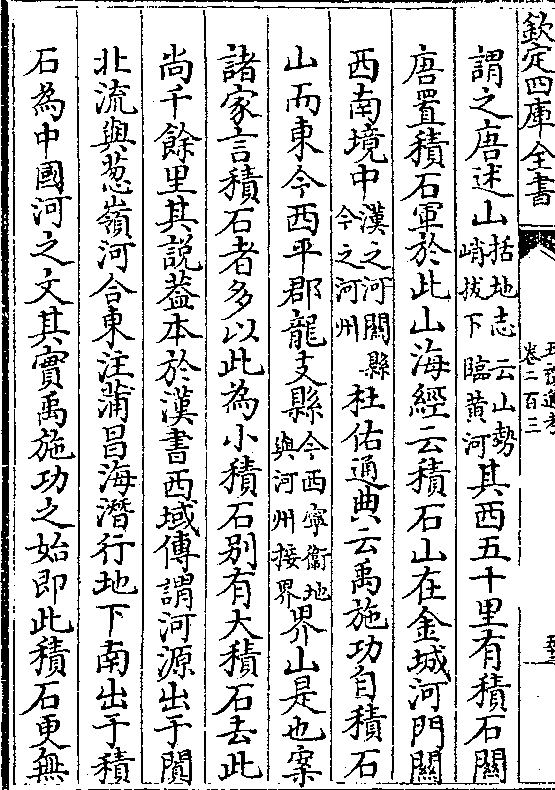 欽定四庫全書
卷二百三
謂之唐述山括地志云山勢峭拔下臨黄河其西五十里有積石關
唐置積石軍於此山海經云積石山在金城河門關
西南境中漢之河關縣今之河州杜佑通典云禹施功自積石
山而東今西平郡龍支縣今西寧衛地與河州接界界山是也案
諸家言積石者多以此為小積石别有大積石去此
尚千餘里其説葢本於漢書西域傳謂河源出于闐
北流與葱嶺河合東注蒲昌海潛行地下南出于積
石為中國河之文其實禹施功之始即此積石更無